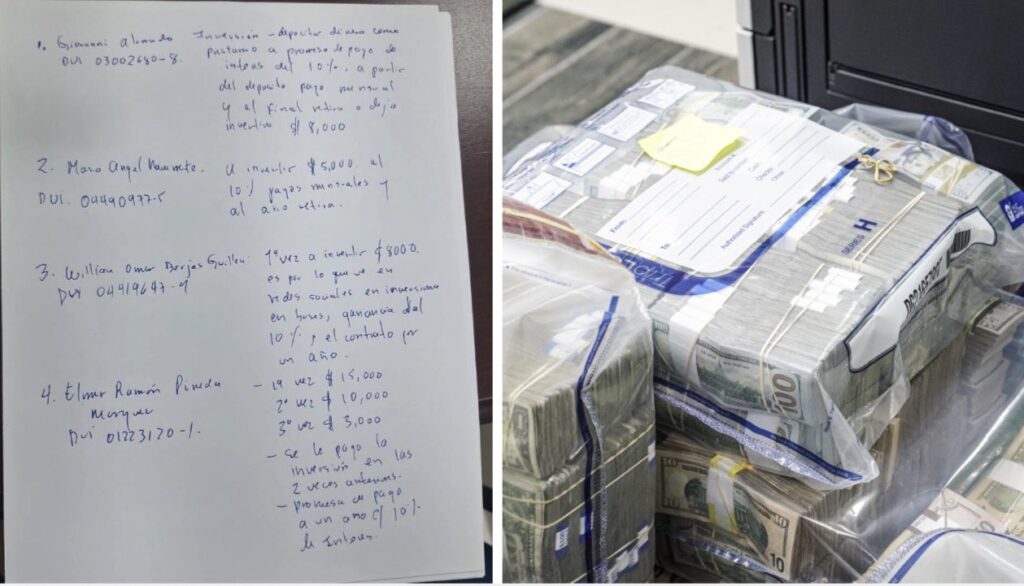 1. Giovanni Alvarado
DUI 03002680-8.
Inversión - depositar dinero como
prestamo a promesa de pago de
interes del 10%. a partir
del deposito pago mensual
y al final retira o deja
inventiva $ 8,000
2. Mario Angel Navarrete.
DUI. 04490977-5
A invertir $5,000. al
10% pagos mensuales y
al año retira.
3. Willian Omar Borjas Guillen
DUI 04419647-9
1ª vez a invertir $8000.
es por lo que ve en
redes sociales en inversiones
en buses, ganancia del
10%, el contrato por
un año.
4. Elmer Ramón Pineda
Marquez
DUI 01223120-1.
- 1ª vez $ 15,000
2ª vez $ 10,000
3ª vez $ 3,000
- se le pago la
inversión en las
2 veces anteriores.
- promesa de pago
a un año c/ 10%
de Interes.
From:
To:
Authorized Signature
SERIES H
100
10